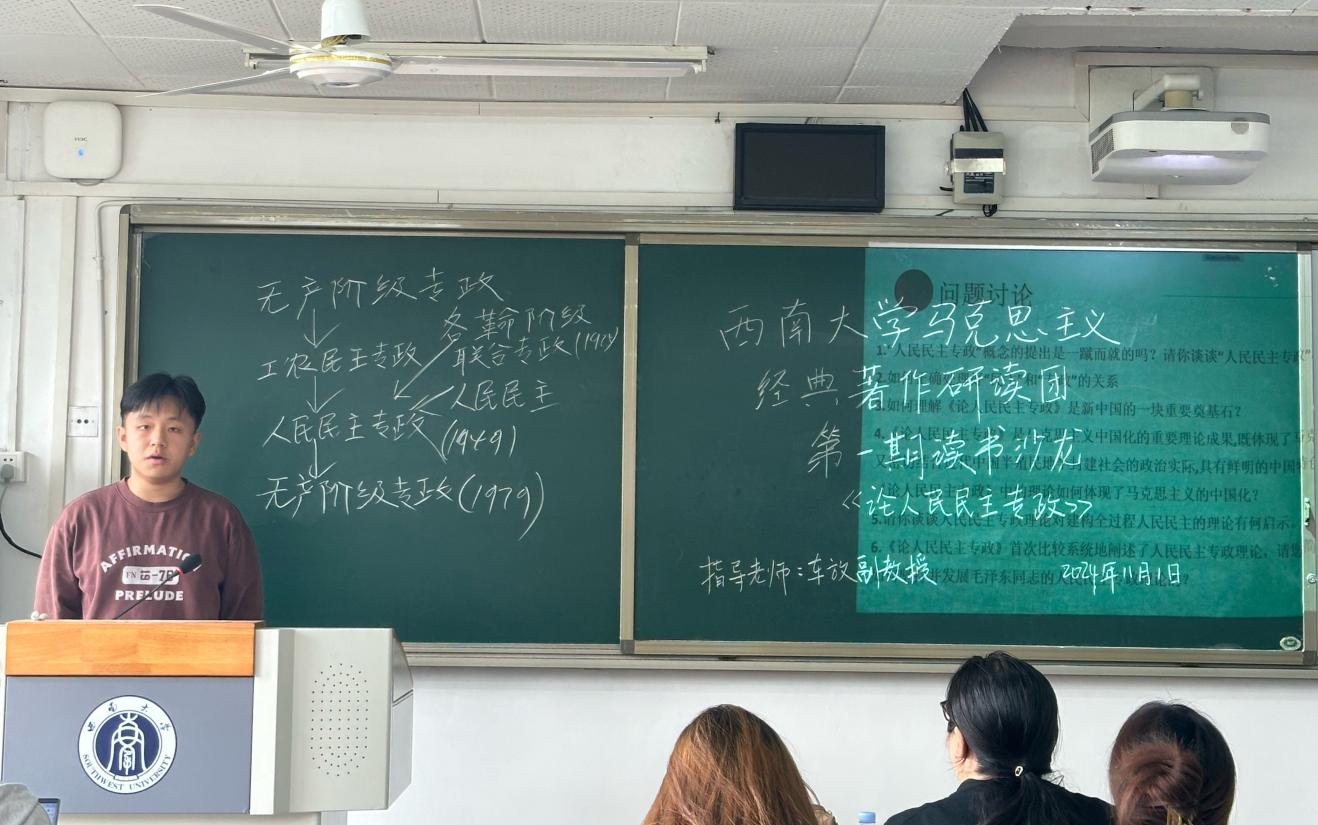 无产阶级专政
各革命阶级
联合专政
工农民主专政
人民民主
人民民主专政
(1949)
无产阶级专政(1979)
西南大学马克思主义
经典著作研读团
第一期读书沙龙
《论人民民主专政》
指导老师:车放副教授
2024年11月1日
问题讨论
1."人民民主专政"概念的提出是一蹴而就的吗?请你谈谈"人民民主专政"
的关系
如何理解《论人民民主专政》是新中国的一块重要奠基石?
中国化的重要理论成果,既体现了马克
建社会的政治实际,具有鲜明的中国特色
理论如何体现了马克思主义的中国化?
5.请你谈谈人民民主专政理论对建构全过程人民民主的理论有何启示。
6.《论人民民主专政》首次比较系统地阐述了人民民主专政理论,请您
发展毛泽东同志的人民
H3C
AFFIRMATIC
PRELUDE
西南大学
SOUTHWEST UNIVERSITY